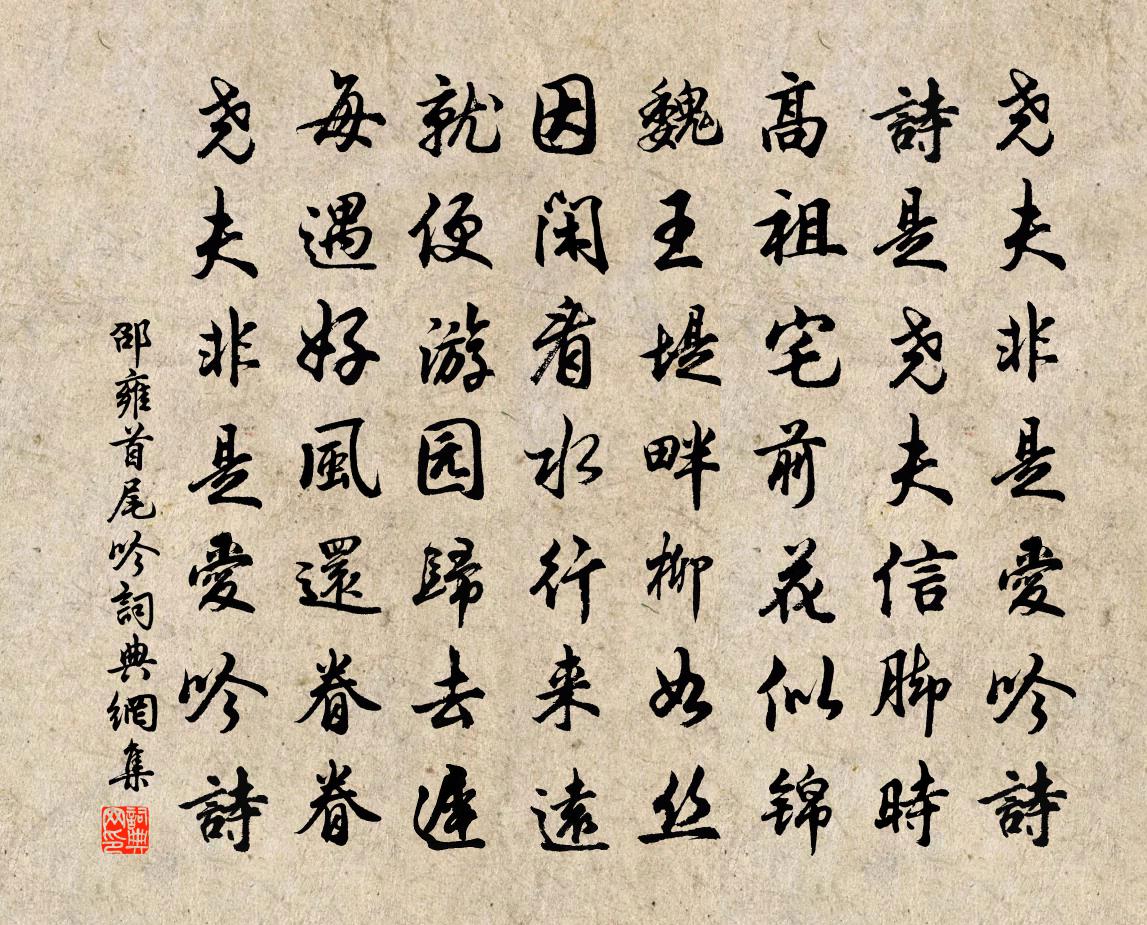 尧夫非是愛吟詩
詩是尧夫信脚時
高祖宅前花似锦
魏王堤畔柳如丝
因闲看水行来遠
就便游园歸去遲
每遇好風還眷眷
尧夫非是愛吟詩
邵雍首尾吟詞典網集
詞典
网印